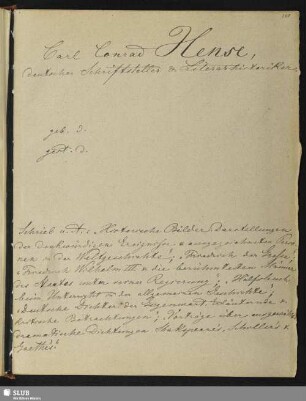 Carl Conrad Hense,
deutscher Schriftsteller & Literarhistoriker.
geb. d.
gest. d.
Schrieb u. A.: Historische Bilder, Darstellungen
der denkwürdigen Ereignisse & ausgezeichneten Personen
in der Weltgeschichte; Friedrich der Große,
Friedrich Wilhelm III & die berühmtesten Männer
des Staates unter seiner Regierung;
beim Unterricht in der allgemeinen Geschichte;
deutsche Dichter der Gegenwart, &
kritische Betrachtungen; Vorträge über ausgewählte
dramatische Dichtungen Shakspeare's, Schiller's &
Goethe's.
SLUB